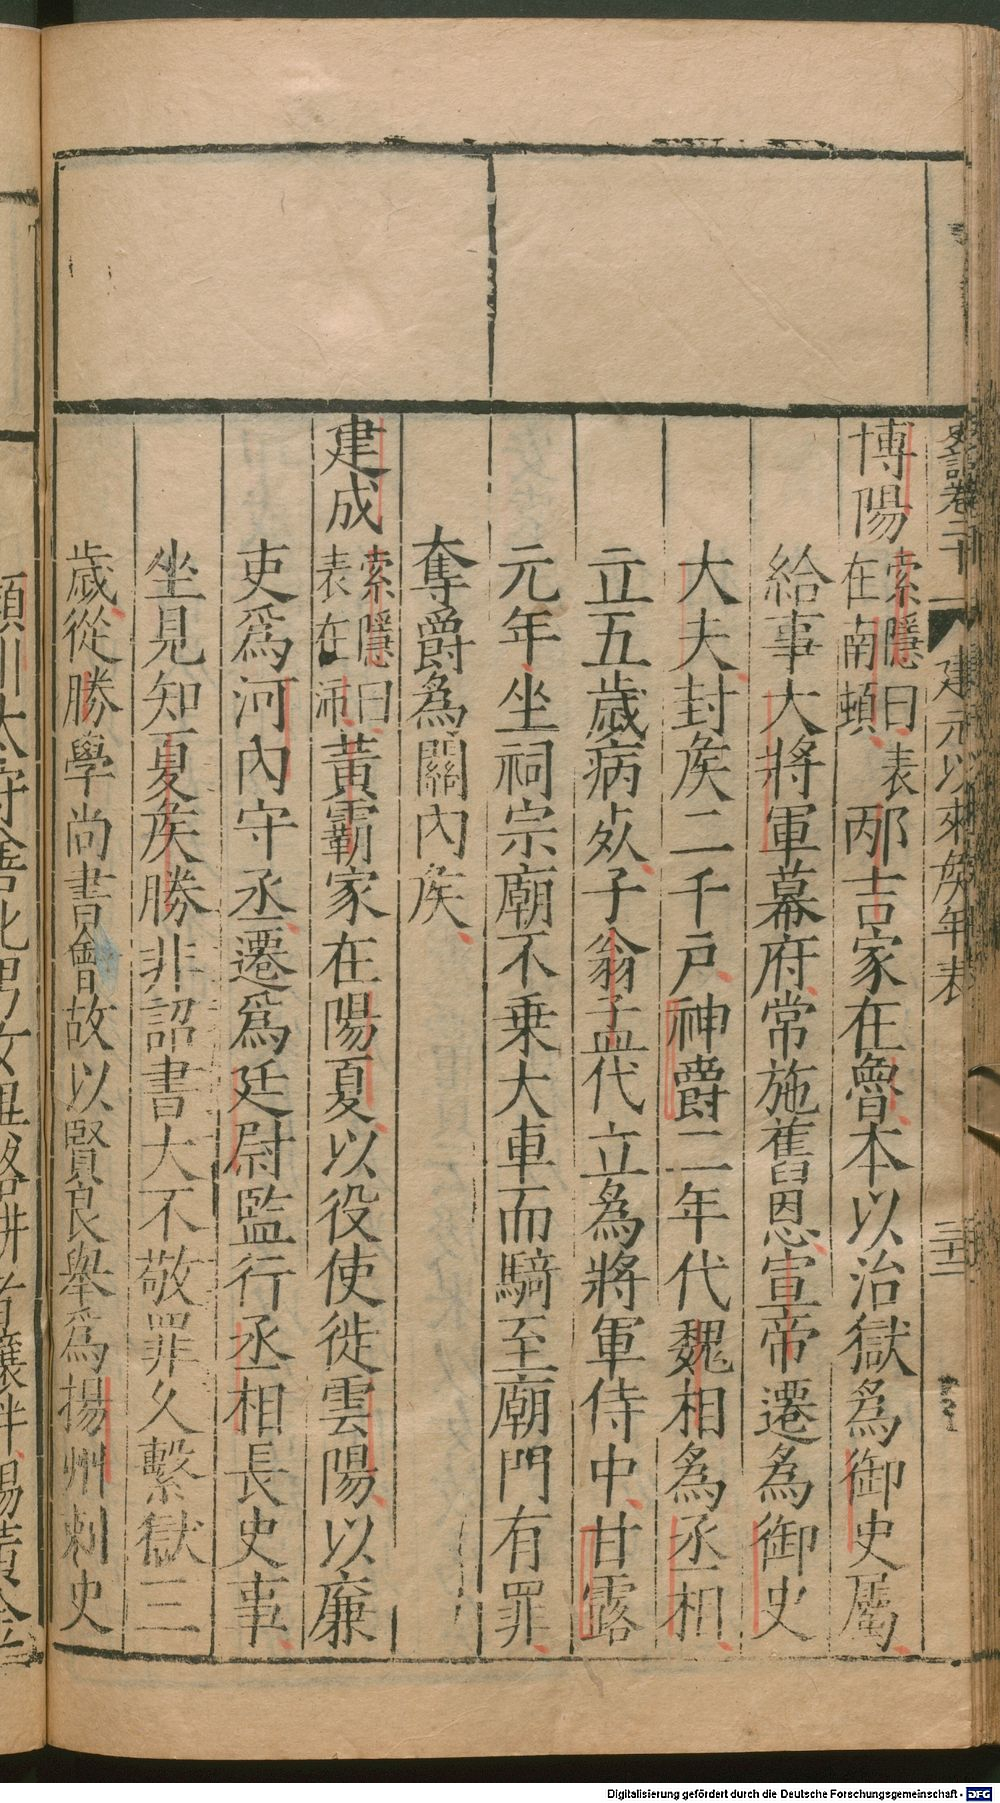 史記卷二十 建元以來矦年表 三十二
博陽 索隱曰表在南頓 邴吉家在魯本以治獄爲御史屬
給事大將軍幕府常施舊恩宣帝遷爲御史
大夫封矦二千戶神爵二年代魏相爲丞相
立五歲病死子翁孟代立爲將軍侍中甘露
元年坐祠宗廟不乗大車而騎至廟門有罪
奪爵爲關內矦
建成 索隱曰表在沛 黃霸家在陽夏以役使徙雲陽以廉
吏爲河內守丞遷爲廷尉監行丞相長史事
坐見知夏矦勝非詔書大不敬罪久繫獄三
歲從勝學尚書會赦以賢良舉爲揚州刺史
潁川太守善化男女異路耕者讓畔賜黃金
Digitalisierung gefördert durch die Deutsche Forschungsgemeinschaft - DFG